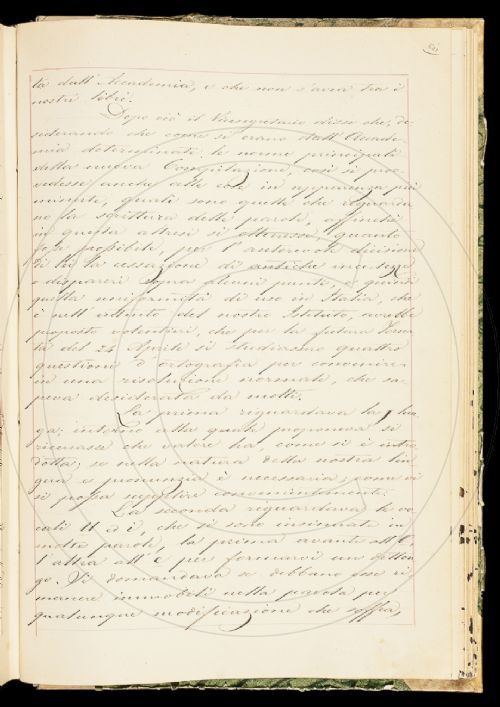 tà dall'Accademia, e che non s'avea tra i
nostri libri.
Dopo ciò il Vicesegretario disse che, de-
siderando che come si erano dall'Accade-
mia determinate le norme principali
della nuova Compilazione, così si pro-
cedesse anche alle cose in apparenza più
minute, quali sono quelle che riguarda-
no la scrittura delle parole, affinché
in questa altresì si ottenesse, quanto
fosse possibile, per l'autorevole decisione
di lei la cessazione di antiche incertezze
e dispareri sopra alcuni punti, e quindi
quella uniformità di uso in Italia, che
è nell'intento del nostro Istituto, avrebbe
proposto volentieri, che per la futura Torna-
ta del 24 Aprile si studiassero quattro
questioni d'ortografia per convenire
in una risoluzione normale, che sa-
peva desiderata da molti.
La prima riguardava la j lun-
ga; intorno alla quale proponeva si
ricercasse che valore ha, come si è intro-
dotta; se nella natura della nostra lin-
gua e pronunzia è necessaria; come vi
si possa supplire convenientemente.
La seconda riguardava le vo-
cali U ed i, che si sono insinuate in
molte parole, la prima avanti all'O,
l'altra all'E per formarvi un ditton-
go. Si domandava se debbano esse ri-
manere immobili nella parola per
qualunque modificazione che soffra,